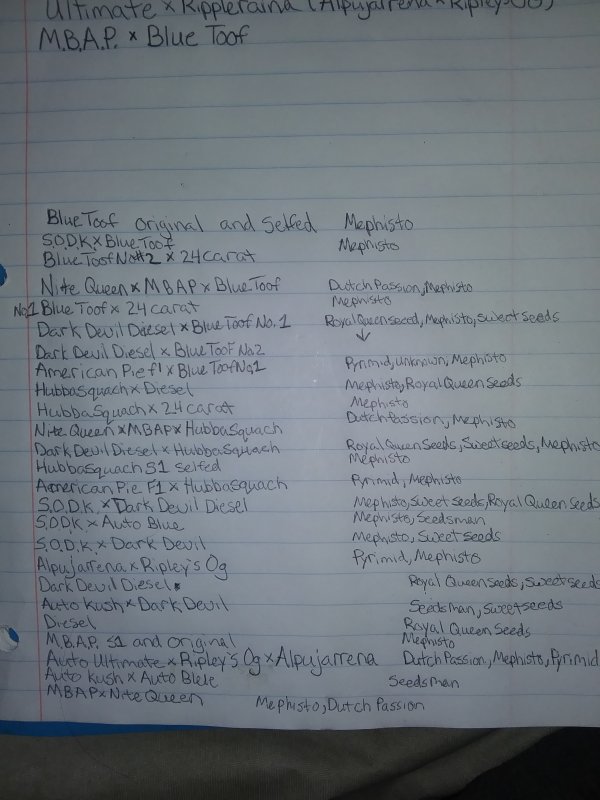 Ultimate × Rippleraina (Alpujarrena × Ripley's OG)
M.B.A.P. × Blue Toof
Blue Toof original and Selfed Mephisto
S.O.D.K. × Blue Toof Mephisto
Blue Toof No#2 × 24 carat
Nite Queen × MBAP × Blue Toof Dutch Passion, Mephisto
No.1 Blue Toof × 24 carat Mephisto
Dark Devil Diesel × Blue Toof No. 1 Royal Queen seed, Mephisto, sweet seeds
Dark Devil Diesel × Blue Toof No.2 ↓
American Pie f1 × Blue Toof No1 Pyrimid, unknown, Mephisto
Hubba Squach × Diesel Mephisto, Royal Queen Seeds
Hubba Squach × 24 carat Mephisto
Nite Queen × MBAP × Hubba Squach Dutch Passion, Mephisto
Dark Devil Diesel × Hubba Squach Royal Queen Seeds, Sweet seeds, Mephisto
Hubba Squach S1 selfed Mephisto
American Pie F1 × Hubba Squach Pyrimid, Mephisto
S.O.D.K. × Dark Devil Diesel Mephisto, Sweet seeds, Royal Queen Seeds
S.ODK × Auto Blue Mephisto, Seedsman
S.O.D.K. × Dark Devil Mephisto, Sweet seeds
Alpujarrena × Ripley's Og Pyrimid, Mephisto
Dark Devil Diesel Royal Queen seeds, Sweet seeds
Auto Kush × Dark Devil Seedsman, Sweet seeds
Diesel Royal Queen Seeds
M.B.A.P. S1 and original Mephisto
Auto Ultimate × Ripley's Og × Alpujarrena Dutch Passion, Mephisto, Pyrimid
Auto Kush × Auto Blue Seedsman
MBAP × Nite Queen Mephisto, Dutch Passion